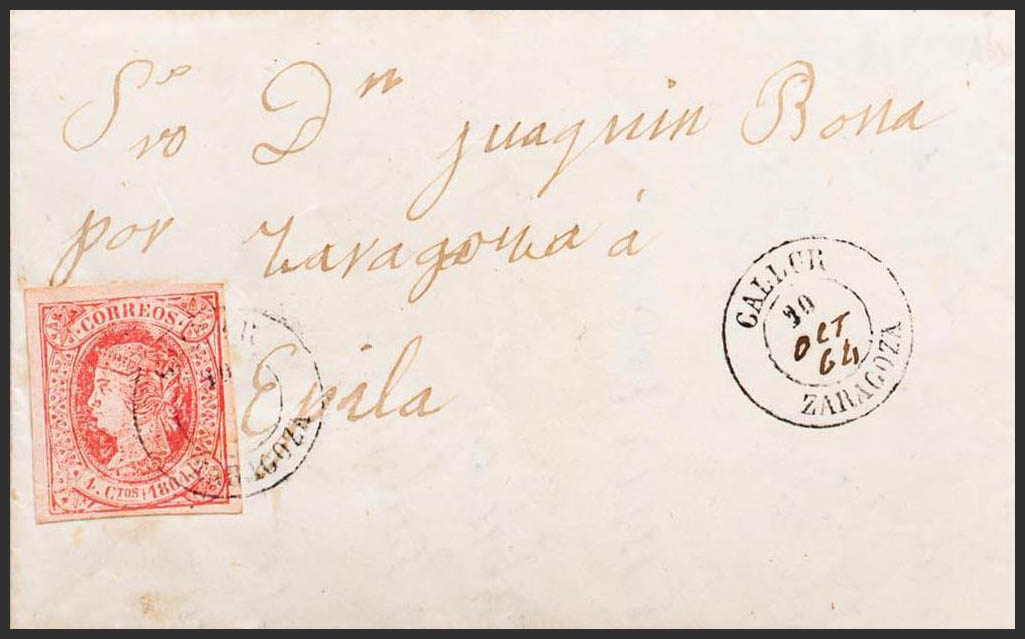 Sr D.n juaquin Bona
por Zaragoza á
Epila
CORREOS
4. CTOS 1864
ZARAGOZA
GALLUR
30
OCT
64
ZARAGOZA